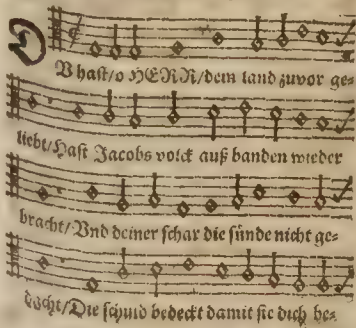 DV hast/o HERR/dem land zuvor ge=
liebt/Hast Jacobs volck auß banden wieder
bracht/Vnd deiner schar die sünde nicht ge=
dacht/Die schuld bedeckt damit sie dich be=